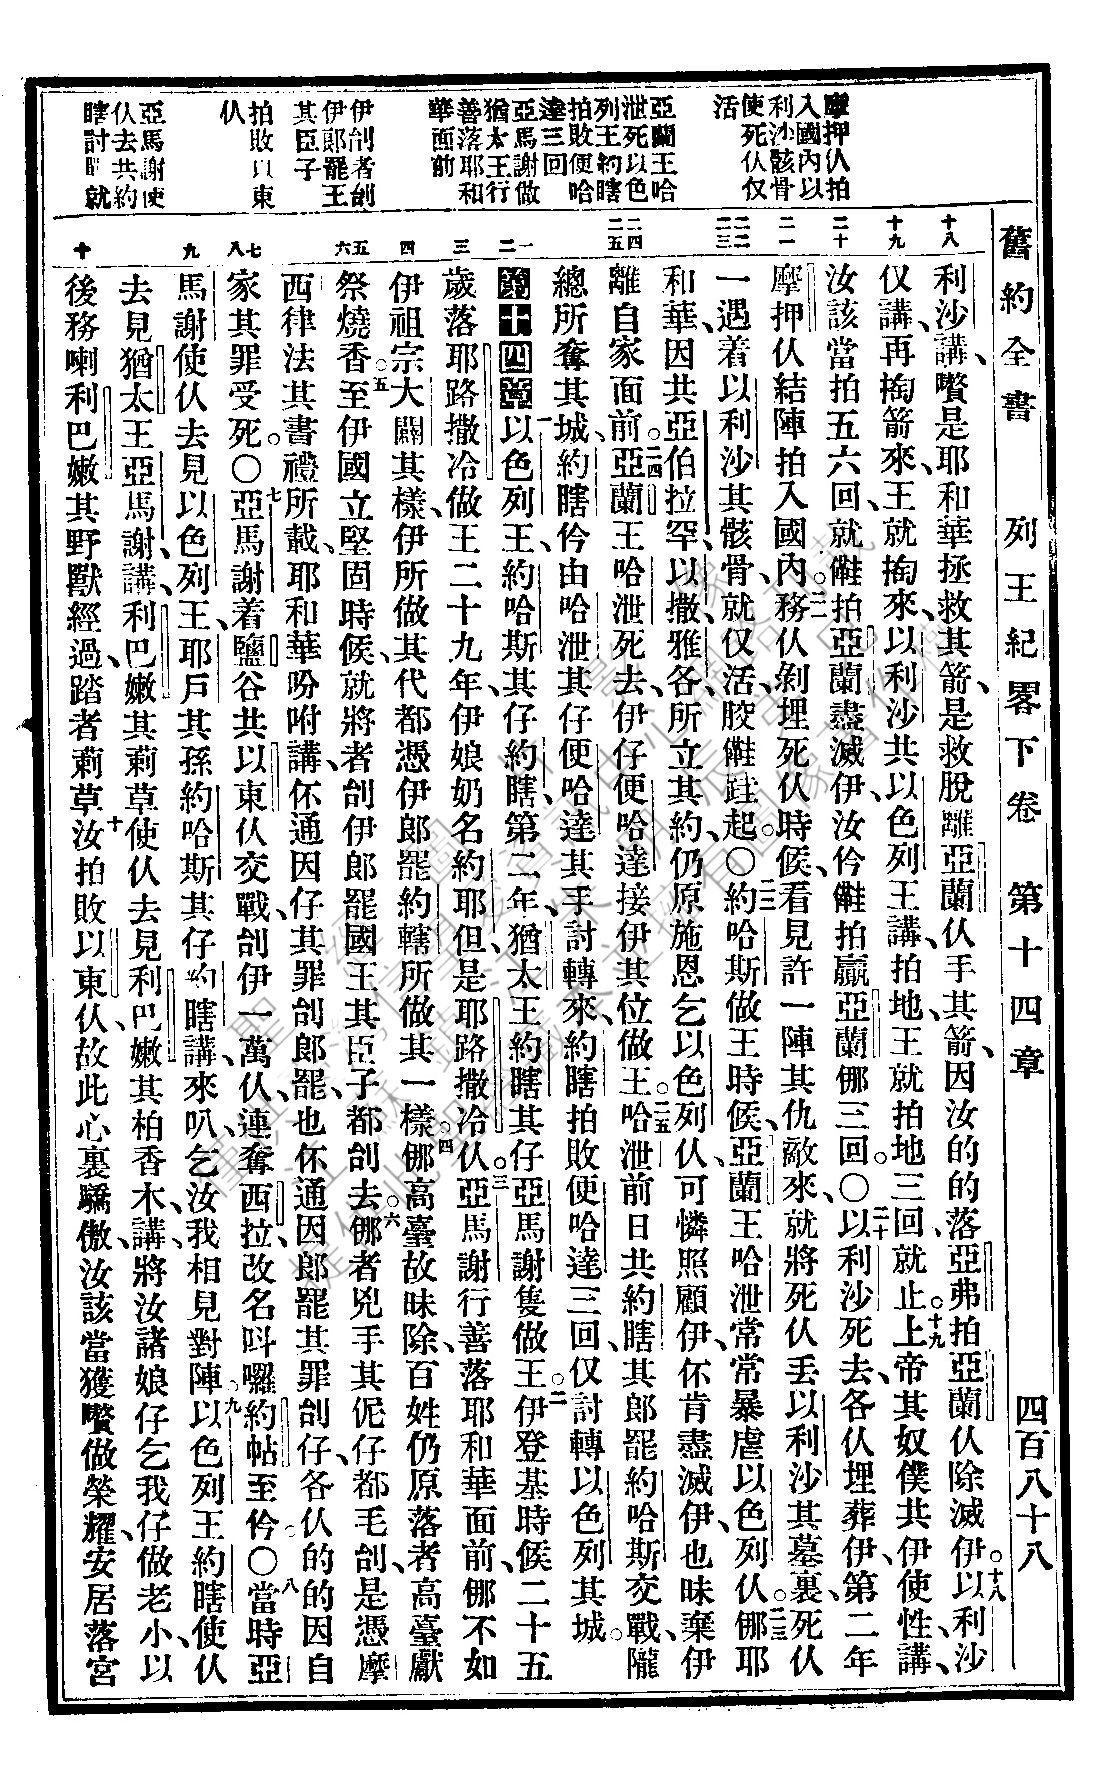 舊約全書　列王紀畧下卷　第十四章　四百八十八
摩押仈拍
入國內以
利沙骸骨
使死仈仅
活
亞蘭王哈
泄死以色
列王約瞎
拍敗便哈
達三回
亞馬謝做
猶太王行
善落耶和
華面前
伊刣者刣
伊郎罷王
其臣子
拍敗以東
仈
亞馬謝使
仈去共約
瞎討
就
十八
十九
二十
二一
二二
二三
二四
二五
一
二
三
四
五
六
七
八
九
十
利沙講、嚽是耶和華拯救其箭、是救脫離亞蘭仈手其箭、因汝的的落亞弗拍亞蘭仈除滅伊。十八以利沙
仅講、再掏箭來、王就掏來、以利沙共以色列王講、拍地、王就拍地三回就止。十九上帝其奴僕共伊使性、講、
汝該當拍五六回、就㑚拍亞蘭盡滅伊、汝仱㑚拍贏亞蘭㑚三回。〇二十以利沙死去、各仈埋葬伊、第二年
摩押仈結陣拍入國內。二一務仈剝埋死仈時候、看見許一陣其仇敵來、就將死仈丟以利沙其墓裏、死仈
一遇着以利沙其骸骨、就仅活、跤㑚跬起。〇二二約哈斯做王時候、亞蘭王哈泄常常暴虐以色列仈。二三㑚耶
和華因共亞伯拉罕、以撒、雅各、所立其約、仍原施恩乞以色列仈、可憐照顧伊、伓肯盡滅伊、也昧棄伊
離自家面前。二四亞蘭王哈泄死去、伊仔便哈達接伊其位做王。二五哈泄前日共約瞎其郎罷約哈斯交戰、隴
總所奪其城、約瞎仱由哈泄其仔便哈達其手討轉來、約瞎拍敗便哈達三回、仅討轉以色列其城。
第十四章　一以色列王、約哈斯其仔約瞎、第二年、猶太王約瞎其仔亞馬謝隻做王。二伊登基時候二十五
歲、落耶路撒冷做王二十九年、伊娘奶名約耶但、是耶路撒冷仈。三亞馬謝行善落耶和華面前、㑚不如
伊祖宗大闢其樣、伊所做其代都憑伊郎罷約轄所做其一樣。四㑚高臺故昧除、百姓仍原落者高臺獻
祭燒香。五至伊國立堅固時候、就將者刣伊郎罷國王其臣子都刣去。六㑚者兇手其伲仔都毛刣、是憑摩
西律法其書禮所載、耶和華吩咐講、伓通因仔其罪刣郎罷、也伓通因郎罷其罪刣仔、各仈的的因自
家其罪受死。〇七亞馬謝着鹽谷共以東仈交戰、刣伊一萬仈、連奪西拉、改名呌囉約帖、至仱。〇八當時亞
馬謝使仈去見以色列王、耶戶其孫約哈斯其仔約瞎、講、來叭乞汝我相見對陣。九以色列王約瞎使仈
去見猶太王亞馬謝、講、利巴嫩其莿草使仈去見利巴嫩其柏香木、講、將汝諸娘仔乞我仔做老小、以
後務喇利巴嫩其野獸經過、踏者莿草。十汝拍敗以東仈、故此心裏驕傲、汝該當獲嚽做榮耀、安居落宮